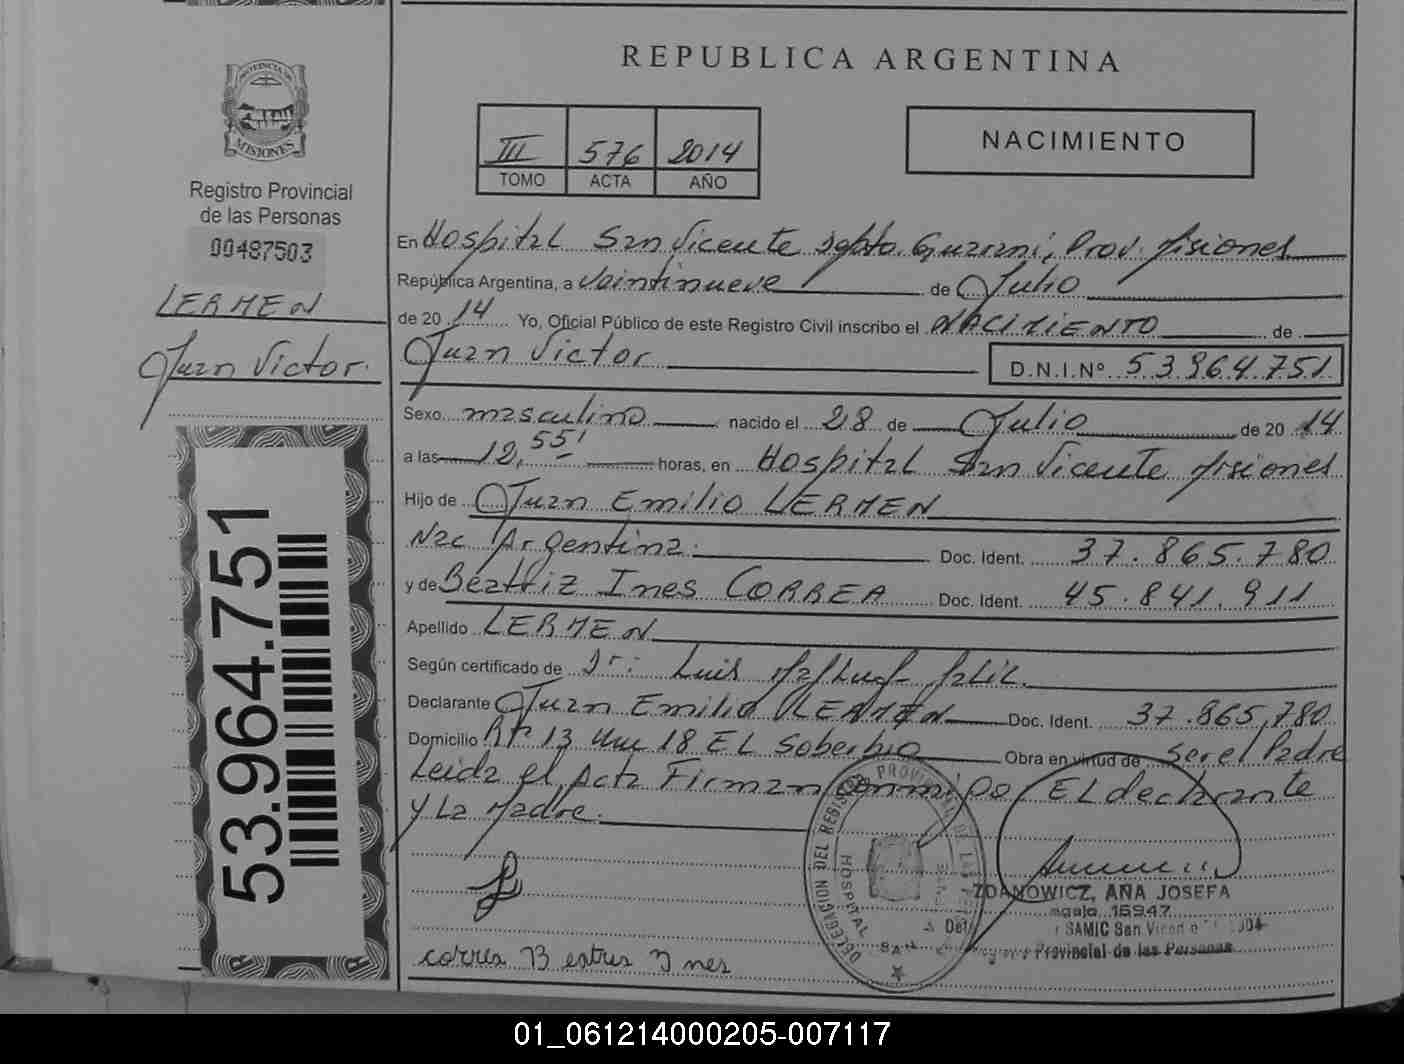 PROVINCIA DE
MISIONES
Registro Provincial
de las Personas
00487503
LERMEN
Juan Victor.
53.964.751
REPUBLICA ARGENTINA
III 576 2014
TOMO ACTA AÑO
NACIMIENTO
En Hospital San Vicente Dpto. Guarani, Prov. Misiones
República Argentina, a veintinueve de Julio
de 2014 Yo, Oficial Público de este Registro Civil inscribo el NACIMIENTO de
Juan Victor D.N.I.Nº 53.964.751
Sexo masculino nacido el 28 de Julio de 2014
a las 12,55' horas, en Hospital San Vicente Misiones
Hijo de Juan Emilio LERMEN
Nac Argentina. Doc. Ident. 37.865.780
y de Beatriz Ines CORREA Doc. Ident. 45.841.911
Apellido LERMEN
Según certificado de Dr: Luis
Declarante Juan Emilio LERMEN Doc. Ident. 37.865,780
Domicilio Rta 13 Km 18 EL Soberbio Obra en virtud de Ser el Padre
Leida el Acta Firman conmigo EL declarante
y La Madre.
DELEGACION DEL REGISTRO PROVINCIAL DE LAS
HOSPITAL SAN
ZDANOWICZ, ANA JOSEFA
15947
SAMIC San Vicente
Provincial de las Personas
correa B eatris y nes
01_061214000205-007117